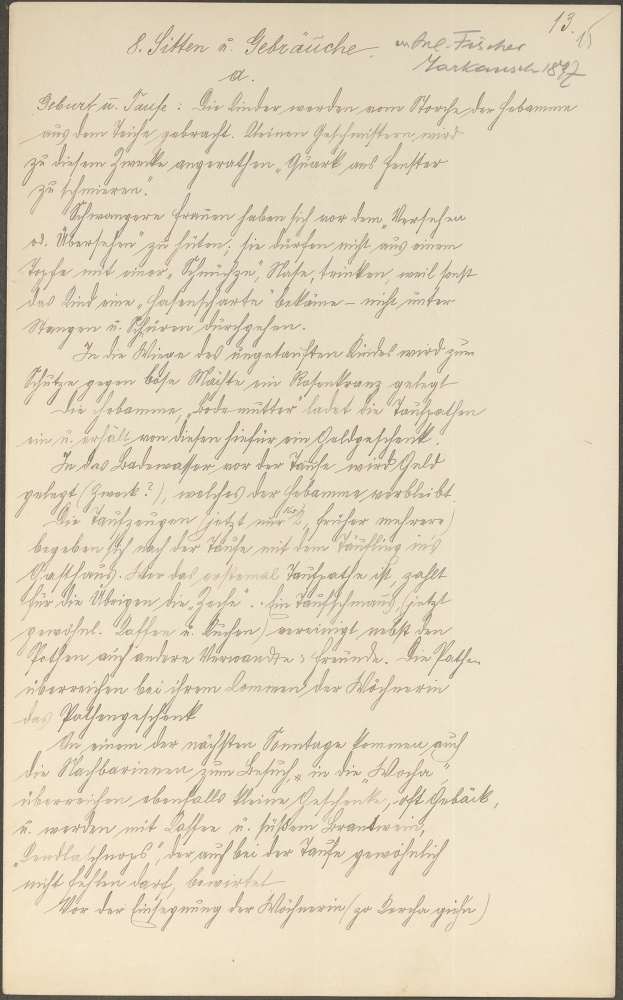 13.
15
8. Sitten u. Gebräuche.
v. Anl. Fischer
1897
a.
Geburt u. Taufe: Die Kinder werden vom Storche der Hebamme
aus dem Teiche gebracht. Kleinen Geschwistern wird
zu diesem Zwecke angerathen „Quark ans Fenster
zu schmieren“.
Schwangere Frauen haben sich vor dem „Versehen
od. Übersehen“ zu hüten; sie dürfen nicht aus einem
Topfe mit einer „Schnuchze“, Nase, trinken, weil sonst
das Kind eine „Hasenscharte“ bekäme – nicht unter
Stangen u. Schnüren durchgehen.
In die Wiege des ungetauften Kindes wird zum
Schutze gegen böse Mächte ein Rosenkranz gelegt
Die Hebamme, „Bodemutter“ ladet die Taufpathen
ein u. erhält von diesen hiefür ein Geldgeschenk.
In das Badewasser vor der Taufe wird Geld
gelegt (Zweck?), welches der Hebamme verbleibt.
Die Taufzeugen (jetzt nur 2, früher mehrere)
begeben sich nach der Taufe mit dem Täufling in's
Gasthaus. Wer das erstemal Taufpathe ist, zahlt
für die Übrigen die „Zeche“. Ein Taufschmaus (jetzt
gewöhnl. Kaffee u. Kuchen) vereinigt nebst den
Pathen auch andere Verwandte u. Freunde. Die Pathen
überreichen bei ihrem Kommen der Wöchnerin
das Pathengeschenk
An einem der nächsten Sonntage kommen auch
die Nachbarinnen zum Besuch, „in die Wocha“,
überreichen ebenfalls kleine Geschenke, oft Gebäck,
u. werden mit Kaffee u. süßem Brantwein,
der auch bei der Taufe gewöhnlich
nicht fehlen darf, bewirtet
Vor der Einsegnung der Wöchnerin (zo Kercha giehn)